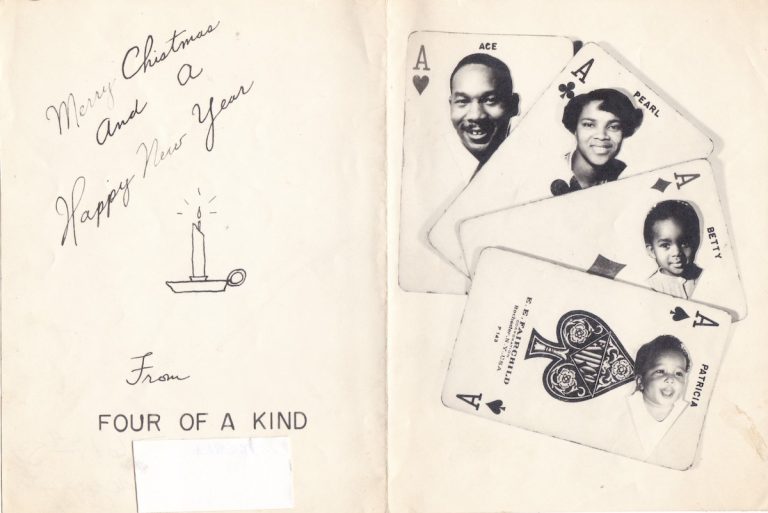 Merry Chistmas
And a
Happy New Year
From
FOUR OF A KIND
A
ACE
A
PEARL
A
BETTY
A
PATRICIA
E. E. FAIRCHILD
Rochester, N.Y. USA
P 143
A